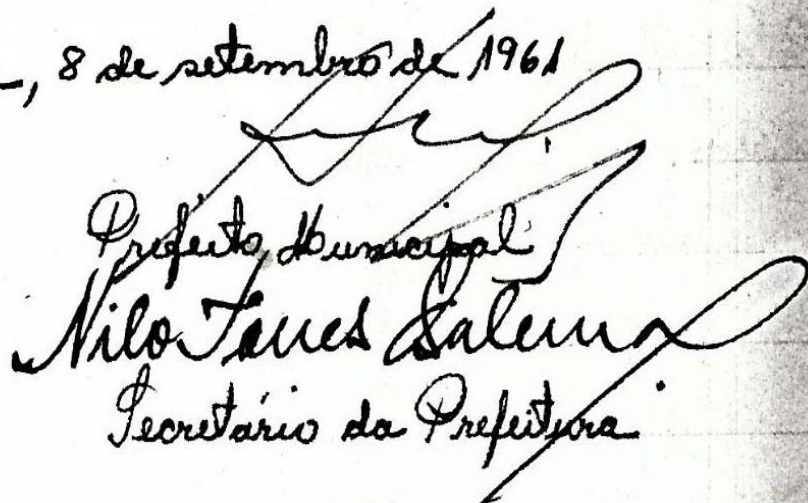 -, 8 de setembro de 1961
Prefeito Municipal
Nilo Torres Salerno
Secretário da Prefeitura